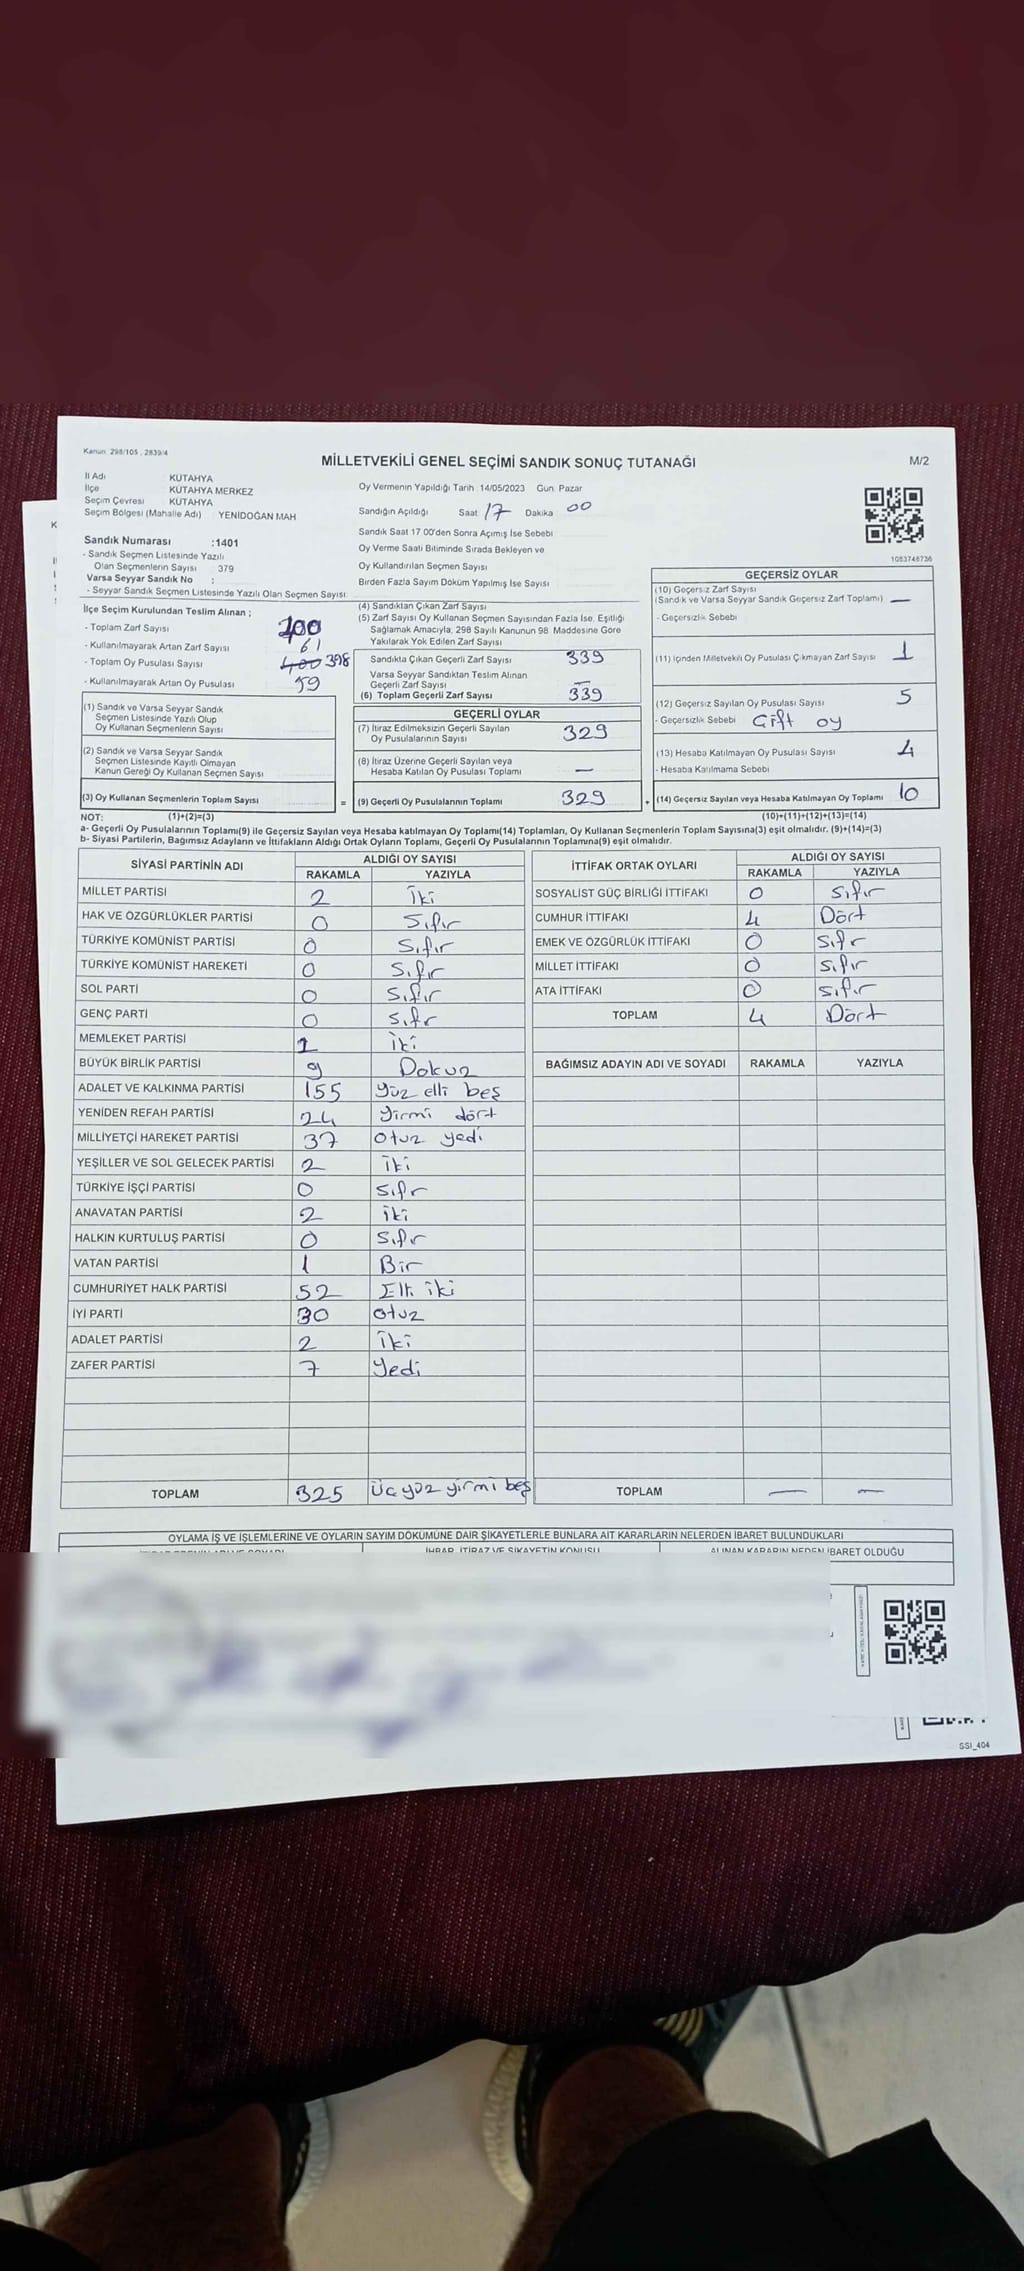 Kanun: 298/105 , 2839/4
MİLLETVEKİLİ GENEL SEÇİMİ SANDIK SONUÇ TUTANAĞI
M/2
İl Adı KÜTAHYA
İlçe KÜTAHYA MERKEZ
Seçim Çevresi KÜTAHYA
Seçim Bölgesi (Mahalle Adı) YENİDOĞAN MAH
Sandık Numarası :1401
- Sandık Seçmen Listesinde Yazılı
Olan Seçmenlerin Sayısı 379
Varsa Seyyar Sandık No :
- Seyyar Sandık Seçmen Listesinde Yazılı Olan Seçmen Sayısı
Oy Vermenin Yapıldığı Tarih 14/05/2023 Gün Pazar
Sandığın Açıldığı Saat 17 Dakika 00
Sandık Saat 17 00'den Sonra Açımış İse Sebebi
Oy Verme Saati Bitiminde Sırada Bekleyen ve
Oy Kullandırılan Seçmen Sayısı
Birden Fazla Sayım Döküm Yapılmış İse Sayısı
1083748736
İlçe Seçim Kurulundan Teslim Alınan ;
- Toplam Zarf Sayısı 400
- Kullanılmayarak Artan Zarf Sayısı 61
- Toplam Oy Pusulası Sayısı 400 398
- Kullanılmayarak Artan Oy Pusulası 59
(1) Sandık ve Varsa Seyyar Sandık
Seçmen Listesinde Yazılı Olup
Oy Kullanan Seçmenlerin Sayısı
(2) Sandık ve Varsa Seyyar Sandık
Seçmen Listesinde Kayıtlı Olmayan
Kanun Gereği Oy Kullanan Seçmen Sayısı
(3) Oy Kullanan Seçmenlerin Toplam Sayısı
=
(4) Sandıktan Çıkan Zarf Sayısı
(5) Zarf Sayısı Oy Kullanan Seçmen Sayısından Fazla İse, Eşitliği
Sağlamak Amacıyla, 298 Sayılı Kanunun 98 Maddesine Göre
Yakılarak Yok Edilen Zarf Sayısı
Sandıkta Çıkan Geçerli Zarf Sayısı 339
Varsa Seyyar Sandıktan Teslim Alınan
Geçerli Zarf Sayısı —
(6) Toplam Geçerli Zarf Sayısı 339
GEÇERLİ OYLAR
(7) İtiraz Edilmeksizin Geçerli Sayılan
Oy Pusulalarının Sayısı 329
(8) İtiraz Üzerine Geçerli Sayılan veya
Hesaba Katılan Oy Pusulası Toplamı —
(9) Geçerli Oy Pusulalarının Toplamı 329
+
GEÇERSİZ OYLAR
(10) Geçersiz Zarf Sayısı
(Sandık ve Varsa Seyyar Sandık Geçersiz Zarf Toplamı) —
- Geçersizlik Sebebi
(11) İçinden Milletvekili Oy Pusulası Çıkmayan Zarf Sayısı 1
(12) Geçersiz Sayılan Oy Pusulası Sayısı 5
- Geçersizlik Sebebi Çift oy
(13) Hesaba Katılmayan Oy Pusulası Sayısı 4
- Hesaba Katılmama Sebebi
(14) Geçersiz Sayılan veya Hesaba Katılmayan Oy Toplamı 10
NOT: (1)+(2)=(3) (10)+(11)+(12)+(13)=(14)
a- Geçerli Oy Pusulalarının Toplamı(9) ile Geçersiz Sayılan veya Hesaba katılmayan Oy Toplamı(14) Toplamları, Oy Kullanan Seçmenlerin Toplam Sayısına(3) eşit olmalıdır. (9)+(14)=(3)
b- Siyasi Partilerin, Bağımsız Adayların ve İttifakların Aldığı Ortak Oyların Toplamı, Geçerli Oy Pusulalarının Toplamına(9) eşit olmalıdır.
SİYASİ PARTİNİN ADI ALDIĞI OY SAYISI
RAKAMLA YAZIYLA
MİLLET PARTİSİ 2 İki
HAK VE ÖZGÜRLÜKLER PARTİSİ 0 Sıfır
TÜRKİYE KOMÜNİST PARTİSİ 0 Sıfır
TÜRKİYE KOMÜNİST HAREKETİ 0 Sıfır
SOL PARTİ 0 Sıfır
GENÇ PARTİ 0 Sıfır
MEMLEKET PARTİSİ 2 İki
BÜYÜK BİRLİK PARTİSİ 9 Dokuz
ADALET VE KALKINMA PARTİSİ 155 Yüz elli beş
YENİDEN REFAH PARTİSİ 24 Yirmi dört
MİLLİYETÇİ HAREKET PARTİSİ 37 Otuz yedi
YEŞİLLER VE SOL GELECEK PARTİSİ 2 İki
TÜRKİYE İŞÇİ PARTİSİ 0 Sıfır
ANAVATAN PARTİSİ 2 İki
HALKIN KURTULUŞ PARTİSİ 0 Sıfır
VATAN PARTİSİ 1 Bir
CUMHURİYET HALK PARTİSİ 52 Elli iki
İYİ PARTİ 30 Otuz
ADALET PARTİSİ 2 İki
ZAFER PARTİSİ 7 Yedi
TOPLAM 325 Üç yüz yirmi beş
İTTİFAK ORTAK OYLARI ALDIĞI OY SAYISI
RAKAMLA YAZIYLA
SOSYALİST GÜÇ BİRLİĞİ İTTİFAKI 0 Sıfır
CUMHUR İTTİFAKI 4 Dört
EMEK VE ÖZGÜRLÜK İTTİFAKI 0 Sıfır
MİLLET İTTİFAKI 0 Sıfır
ATA İTTİFAKI 0 Sıfır
TOPLAM 4 Dört
BAĞIMSIZ ADAYIN ADI VE SOYADI RAKAMLA YAZIYLA
TOPLAM — —
OYLAMA İŞ VE İŞLEMLERİNE VE OYLARIN SAYIM DÖKÜMÜNE DAİR ŞİKAYETLERLE BUNLARA AİT KARARLARIN NELERDEN İBARET BULUNDUKLARI
İHBAR, İTİRAZ VE ŞİKAYETİN KONUSU ALINAN KARARIN NEDEN İBARET OLDUĞU
SSI_404